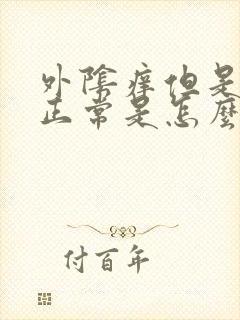 外陰痒但是
正常是怎麼
付百年